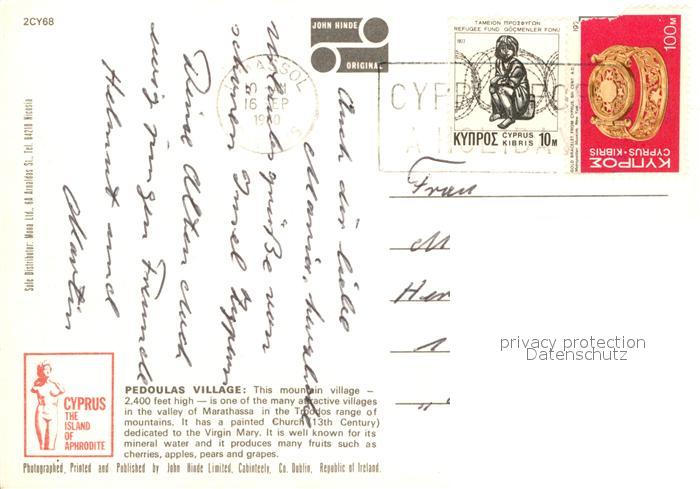 2CY68
JOHN HINDE
ORIGINAL
ΤΑΜΕΙΟΝ ΠΡΟΣΦΥΓΩΝ
REFUGEE FUND GÖÇMENLER FONU
1977
ΚΥΠΡΟΣ CYPRUS KIBRIS 10M
100M
GOLD BRACELET FROM CYPRUS, 6th CENT. A.D.
Metropolitan Museum, New York
ΚΥΠΡΟΣ
CYPRUS·KIBRIS
16 SEP
1980
CYPRUS FOR
A HOLIDAY
Auch dir liebe
Maria, herzliche
grüße von
schönen Insel Zypern
Deine Alten und
ewig jungen Freunde
Helmut und
Martin
Frau
M
Her
privacy protection
Datenschutz
Sole Distributor: Mona Ltd., 6A Arnaldas St., Tel. 64210 Nicosia
CYPRUS
THE
ISLAND
OF
APHRODITE
PEDOULAS VILLAGE: This mountain village –
2,400 feet high — is one of the many attractive villages
in the valley of Marathassa in the Troodos range of
mountains. It has a painted Church (13th Century)
dedicated to the Virgin Mary. It is well known for its
mineral water and it produces many fruits such as
cherries, apples, pears and grapes.
Photographed, Printed and Published by John Hinde Limited, Cabinteely, Co. Dublin, Republic of Ireland.